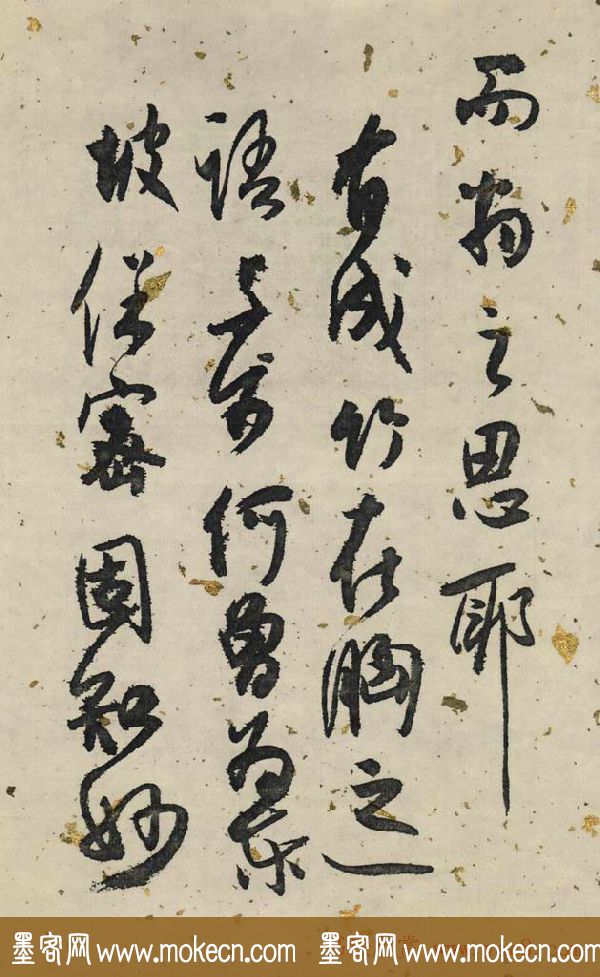 而之思耶
有成竹在胸之
語何曾為東
坡密固知妙
墨客网 www.mokecn.com 墨客网 www.mokecn.com